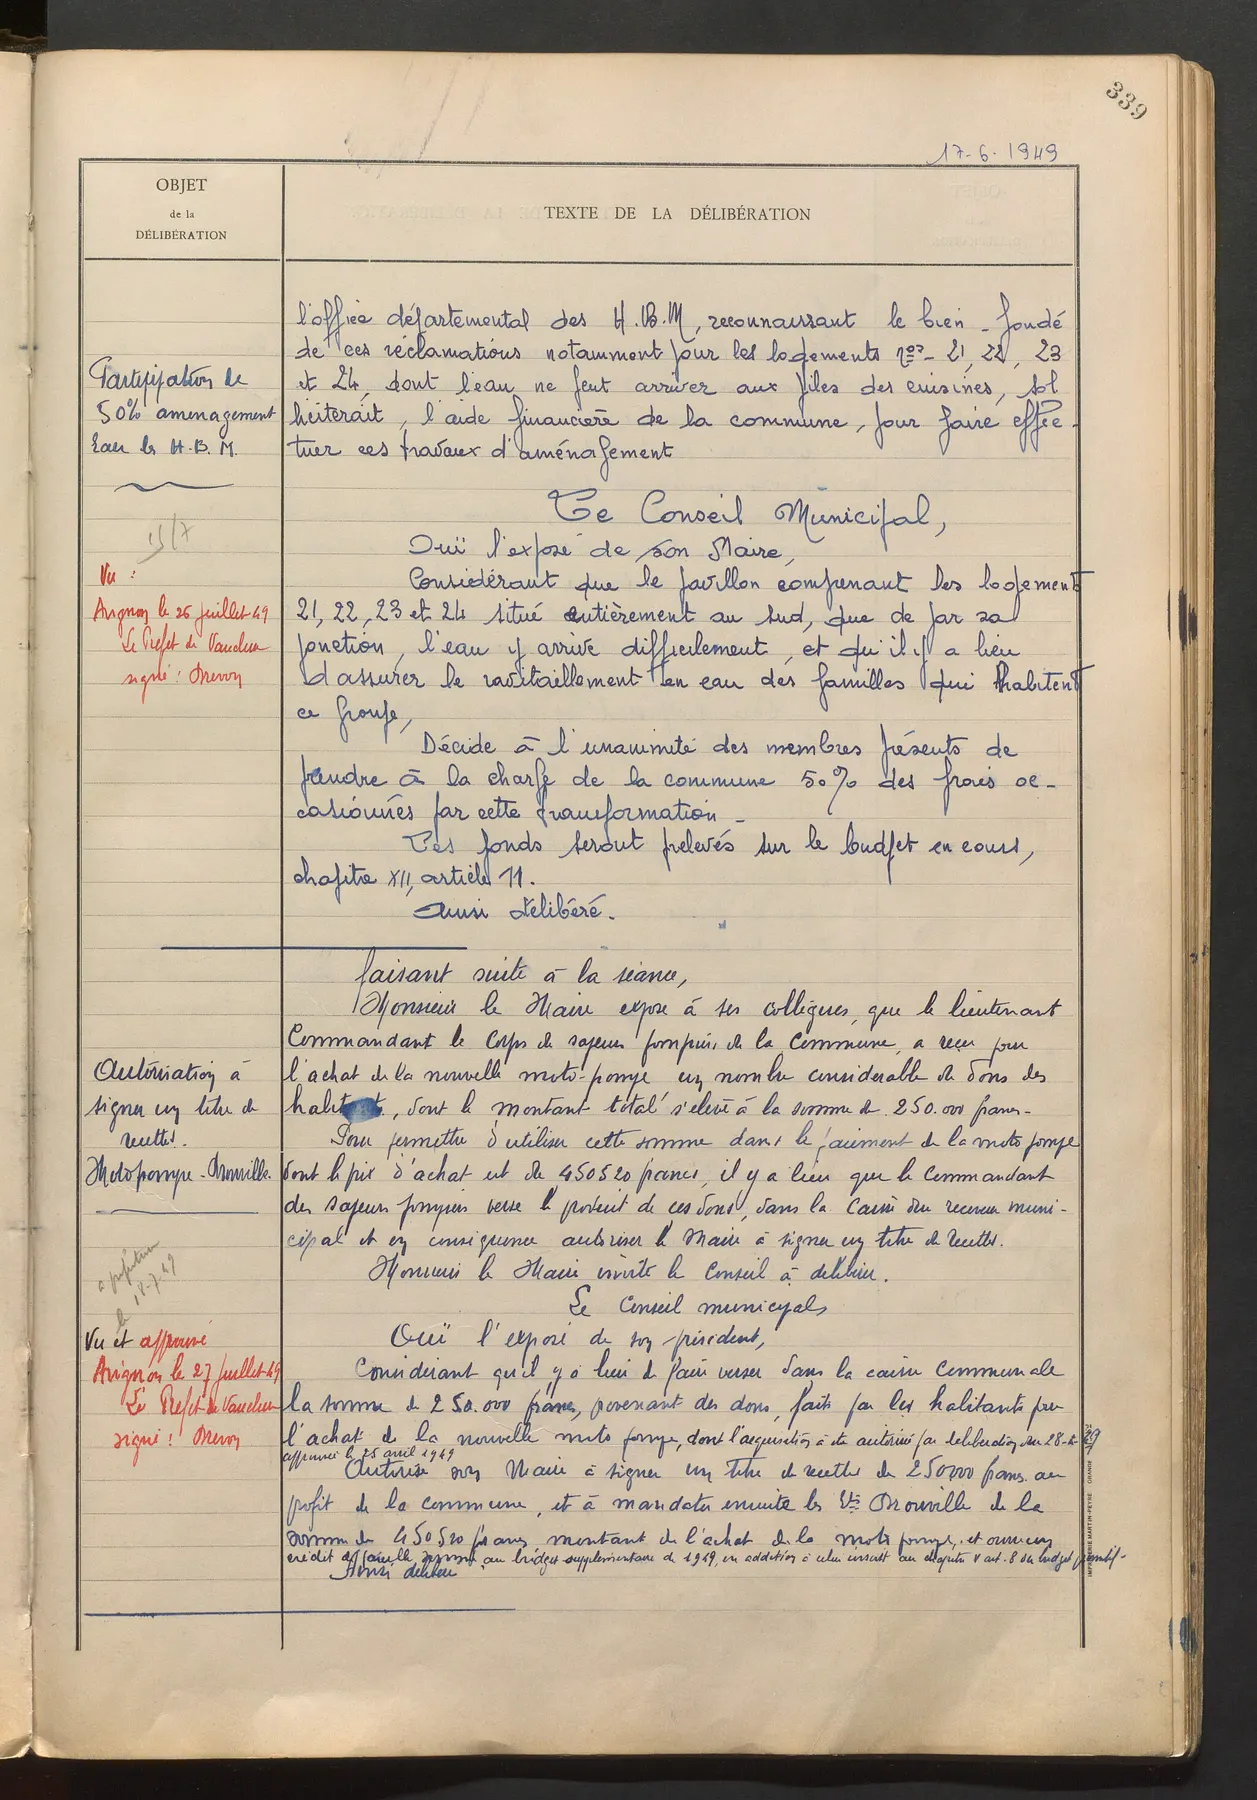 339
17-6-1949
OBJET
de la
DÉLIBÉRATION
TEXTE DE LA DÉLIBÉRATION
l'office départemental des H.B.M, reconnaissant le bien-fondé
de ces réclamations notamment pour les logements nos- 21, 22, 23
et 24, dont l'eau ne peut arriver aux piles des cuisines, sol
liciterait, l'aide financière de la commune, pour faire effec-
tuer ces travaux d'aménagement
Participation de
50% aménagement
Eau les H.B.M.
Le Conseil Municipal,
Ouï l'exposé de son Maire,
Considérant que le pavillon comprenant les logements
21, 22, 23 et 24 situé entièrement au sud, que de par sa
jonction, l'eau y arrive difficilement, et qu'il y a lieu
d'assurer le ravitaillement en eau des familles qui habitent
ce groupe,
Décide à l'unanimité des membres présents de
prendre à la charge de la commune 50% des frais oc-
casionnés par cette transformation-
Ces fonds seront prelevés sur le budget en cours,
chapitre XII, article 11.
Ainsi délibéré.
15/7
Vu :
Avignon le 26 juillet 49
Le Préfet de Vaucluse
signé :
faisant suite à la séance,
Monsieur le Maire expose à ses collègues, que le lieutenant
Commandant le Corps de sapeurs pompiers de la Commune, a reçu pour
l'achat de la nouvelle moto-pompe un nombre considerable de dons des
habitants, dont le montant total s'elève à la somme de 250.000 francs-
Pour permettre d'utiliser cette somme dans le paiement de la moto pompe
dont le prix d'achat est de 450520 francs, il y a lieu que le Commandant
des sapeurs pompiers verse le produit de ces dons, dans la Caisse du receveur muni-
cipal et en conséquence autoriser le Maire à signer un titre de recettes.
Monsieur le Maire invite le Conseil à délibérer.
Autorisation à
signer un titre de
recettes.
Motopompe - Drouville.
Le Conseil municipal,
Ouï l'exposé de son président,
Considérant qu'il y a lieu de faire verser dans la caisse Communale
la somme de 250.000 francs, provenant des dons, faits par les habitants pour
l'achat de la nouvelle moto pompe, dont l'acquisition a été autorisé par deliberation du 28-2-49
approuvée le 25 avril 1949
Autorise son Maire à signer un titre de recettes de 250000 francs au
profit de la commune, et à mandater ensuite les Ets Drouville de la
somme de 450520 francs montant de l'achat de la moto pompe, et ouvre un
crédit de pareille somme au budget supplémentaire de 1949, en addition à celui inscrit au chapitre V art. 8 du budget primitif-
Ainsi délibéré
à préfecture
le 18-7-49
Vu et approuvé
Avignon le 27 juillet 49
Le Préfet de Vaucluse
signé :
IMPRIMERIE MARTIN-PEYRE ORANGE